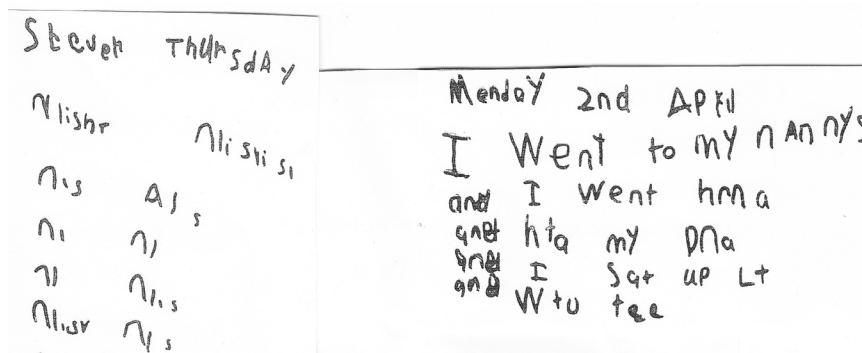 Steven Thursday
nlishr nlisrisi
nis Als
ni ni
ni nlis
nlisr nis
Monday 2nd April
I went to my nAnnys
and I went hma
and hta my Dna
and I Sat up Lt
and Wtu tee